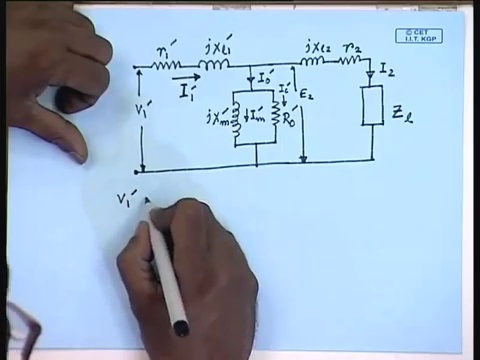 © CET
I.I.T. KGP
r₁′ jxₗ₁′ jxₗ₂ r₂
I₁′ I₀′ I₂
V₁′ jxₘ′ Iₘ′ Iᵢ′ R₀′ E₂ Zₗ
V₁′